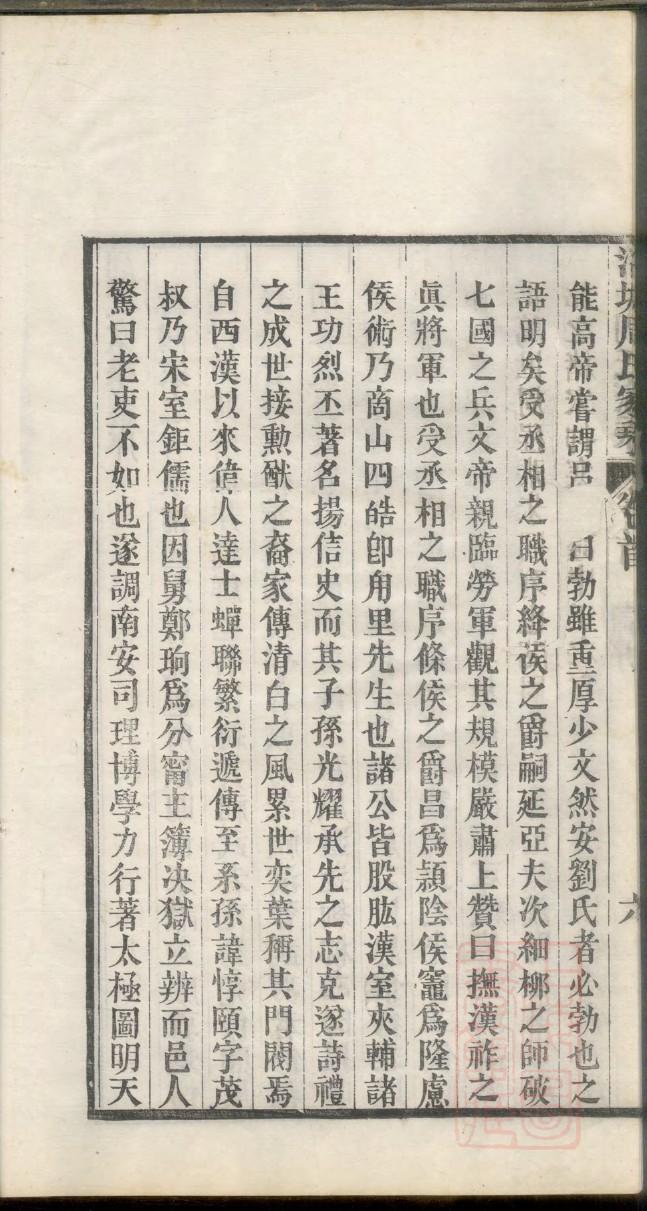 能高帝嘗謂呂 曰勃雖重厚少文然安劉氏者必勃也之
語明矣受丞相之職序絳侯之爵嗣延亞夫次細柳之師破
七國之兵文帝親臨勞軍觀其規模嚴肅上贊曰撫漢祚之
眞將軍也受丞相之職序條侯之爵昌爲頴陰侯竈爲隆慮
侯術乃商山四皓卽甪里先生也諸公皆股肱漢室夾輔諸
王功烈丕著名揚信史而其子孫光耀承先之志克遂詩禮
之成世接勲猷之裔家傳清白之風累世奕葉稱其門閥焉
自西漢以來偉人達士蟬聯繁衍遞傳至系孫諱惇頤字茂
叔乃宋室鉅儒也因舅鄭珦爲分甯主簿决獄立辨而邑人
驚曰老吏不如也遂調南安司理博學力行著太極圖明天
周氏家乘
卷首
六